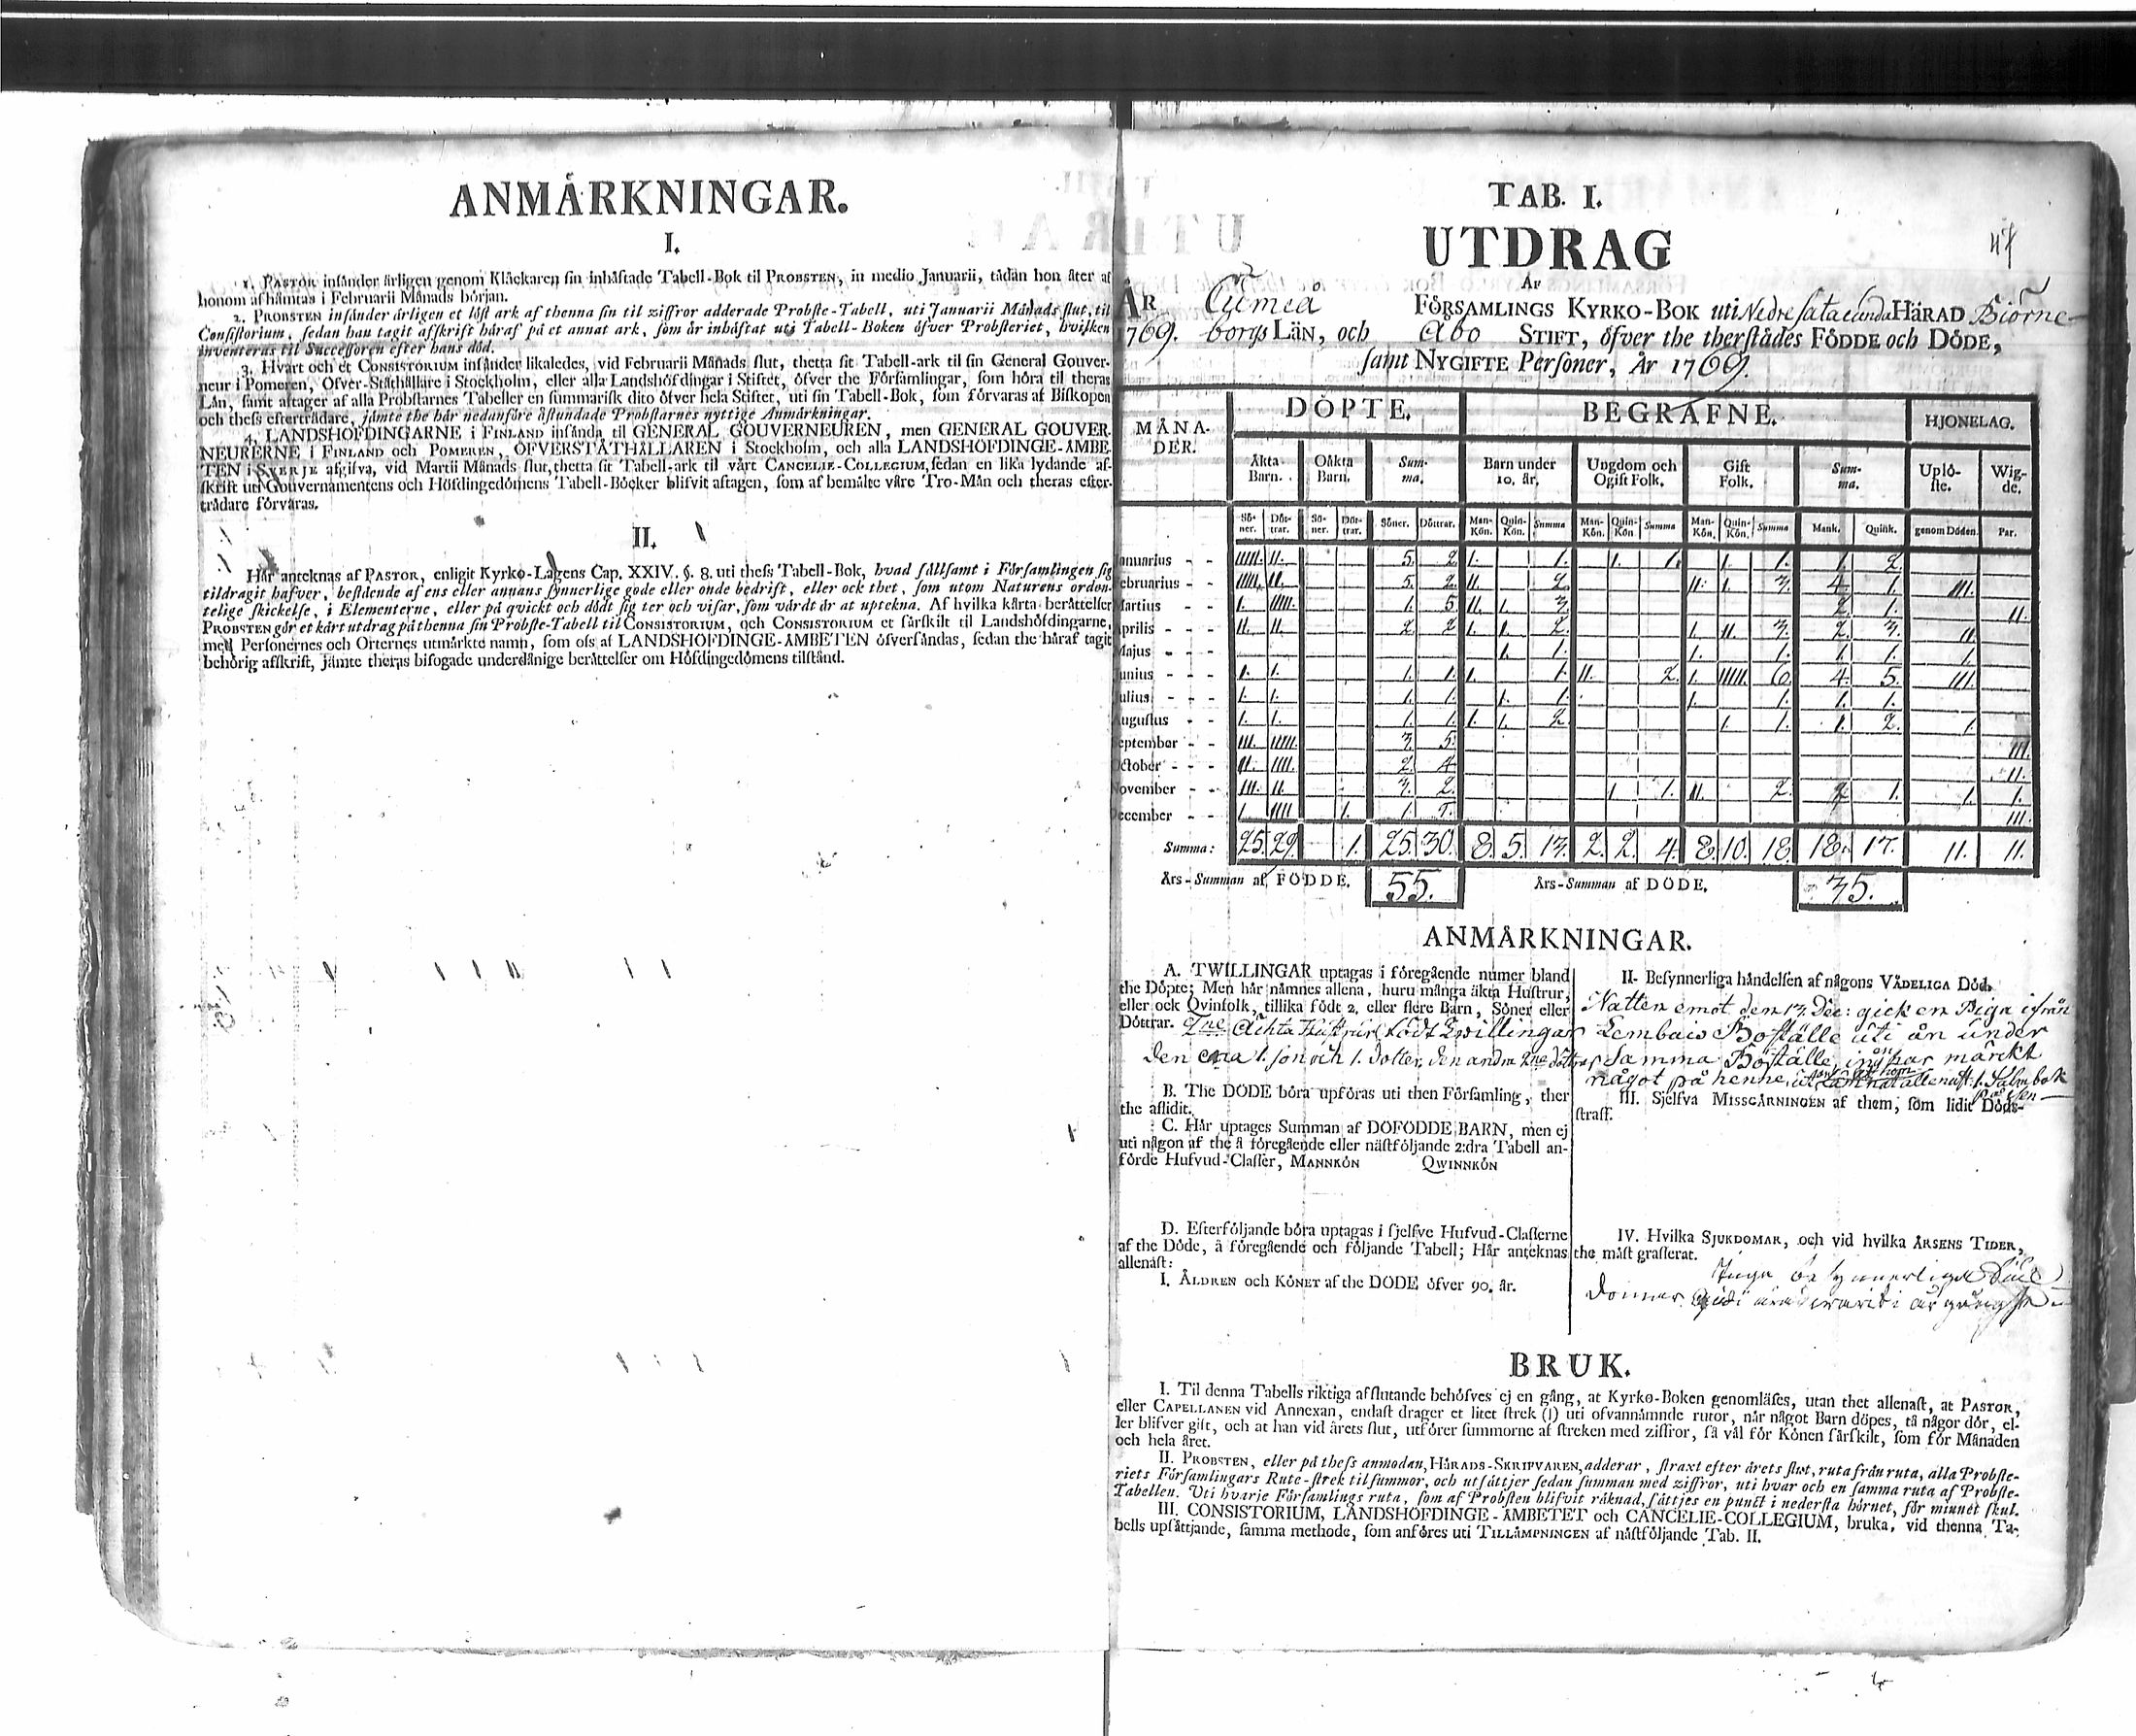 ANMÅRKNINGAR.
I.
1. PASTOR insånder årligen genom Klåckaren sin inhåftade Tabell-Bok til PROBSTEN, in medio Januarii, tådan hon åter af
honom afhåmtas i Februarii Månads början.
2. PROBSTEN insånder årligen et löst ark af thenna sin til ziffror adderade Probste-Tabell, uti Januarii Månads slut, til
Consistorium, sedan han tagit afskrift håraf på et annat ark, som år inhåftat uti Tabell-Boken öfver Probsteriet, hvilken
inventeras til Successoren efter hans död.
3. Hvart och et CONSISTORIUM insånder likaledes, vid Februarii Månads slut, thetta sit Tabell-ark til sin General Gouver-
neur i Pomeren, Öfver-Ståthållare i Stockholm, eller alla Landshöfdingar i Stiftet, öfver the Församlingar, som höra til theras
Lån, samt aftager af alla Probstarnes Tabeller en summarisk dito öfver hela Stiftet, uti sin Tabell-Bok, som förvaras af Biskopen
och thess eftertrådare, jåmte the hår nedanföre åstundade Probstarnes nyttige Anmårkningar.
4. LANDSHÖFDINGARNE i FINLAND insånda til GENERAL GOUVERNEUREN, men GENERAL GOUVER-
NEURERNE i FINLAND och POMEREN, ÖFVERSTÅTHÅLLAREN i Stockholm, och alla LANDSHÖFDINGE-ÅMBE-
TEN i SVERJE afgifva, vid Martii Månads slut, thetta sit Tabell-ark til vårt CANCELIE-COLLEGIUM, sedan en lika lydande af-
skrift uti Gouvernamentens och Höfdingedömens Tabell-Böcker blifvit aftagen, som af bemålte våre Tro-Mån och theras efter-
trådare förvaras.
II.
Hår anteknas af PASTOR, enligit Kyrko-Lagens Cap. XXIV. §. 8. uti thess Tabell-Bok, hvad sållsamt i Församlingen sig
tildragit hafver, bestående af ens eller annans synnerlige gode eller onde bedrift, eller ock thet, som utom Naturens orden-
telige skickelse, i Elementerne, eller på qvickt och dödt sig ter och visar, som vårdt år at uptekna. Af hvilka kårta beråttelser
PROBSTEN gör et kårt utdrag på thenna sin Probste-Tabell til CONSISTORIUM, och CONSISTORIUM et sårskilt til Landshöfdingarne,
med Personernes och Orternes utmårkte namn, som oss af LANDSHÖFDINGE-ÅMBETEN öfversåndas, sedan the håraf tagit
behörig afskrift, jåmte theras bifogade underdånige beråttelser om Höfdingedömens tilstånd.
47
TAB. I.
UTDRAG
Af
ÅR Cumea FÖRSAMLINGS KYRKO-BOK uti Nedre Satacunda HÄRAD Biörne-
1769. borgs LÄN, och Åbo STIFT, öfver the therstådes FÖDDE och DÖDE,
samt NYGIFTE Personer, År 1769.
MÅNA-DER. DÖPTE. BEGRAFNE. HJONELAG.
Åkta Barn. Oåkta Barn. Sum-ma. Barn under 10. år. Ungdom och Ogift Folk. Gift Folk. Sum-ma. Uplö-ste. Wig-de.
Sö-ner. Döt-trar. Sö-ner. Döt-trar. Söner. Döttrar. Man-Kön. Quin-Kön. Summa Man-Kön. Quin-Kön Summa Man-Kön. Quin-Kön. Summa Mank. Quink. genom Döden Par.
Januarius - - IIIII. II. 5. 2. I. 1. I. 1. I. 1. 1. 2.
Februarius - - IIIII. II. 5. 2. II. 2. II. I. 3. 4. 1. III.
Martius - - I. IIIII. 1. 5. II. I. 3. 2. 1. II.
Aprilis - - II. II. 2. 2. I. I. 2. I. II. 3. 2. 3. II.
Majus - - I. 1. I. 1. 1. 1. I.
Junius - - I. I. 1. 1. I. 1. II. 2. I. IIIII. 6. 4. 5. III.
Julius - - I. I. 1. 1. I. 1. I. 1. 1. 1.
Augustus - - I. I. 1. 1. I. I. 2. I. 1. 1. 2. I.
September - - III. IIIII. 3. 5. III.
October - - II. IIII. 2. 4. II.
November - - III. II. 3. 2. I 1. II. 2. 2. 1. I. I.
December - - I. IIII I. 1. 5. III.
Summa: 25. 29. 1. 25. 30. 8. 5. 13. 2. 2. 4. 8. 10. 18. 18. 17. 11. 11.
Års-Summan af FÖDDE. 55. Års-Summan af DÖDE. 35.
ANMÅRKNINGAR.
A. TWILLINGAR uptagas i föregående numer bland
the Döpte; Men hår nåmnes allena, huru många åkta Hustrur,
eller ock Qvinfolk, tillika födt 2, eller flere Barn, Söner eller
Döttrar. 2ne Achta Hustrur födt Zwillingar
den ena 1. son och 1. dotter, den andra 2ne döttrar
B. The DÖDE böra upföras uti then Församling, ther
the aflidit.
C. Hår uptages Summan af DÖFÖDDE BARN, men ej
uti någon af the å föregående eller nåstföljande 2:dra Tabell an-
förde Hufvud-Classer, MANNKÖN QWINNKÖN
D. Efterföljande böra uptagas i sjelfve Hufvud-Classerne
af the Döde, å föregående och följande Tabell; Hår anteknas
allenåst:
I. ÅLDREN och KÖNET af the DÖDE öfver 90. år.
II. Besynnerliga håndelsen af någons VÅDELIGA Död.
Natten emot den 13. Dec: gick en Piga ifrån
Lembais Boställe uti ån under
samma Boställe, har märckt
något på henne,
III. Sjelfva MISSGÅRNINGEN af them, som lidit Döds-
straff.
IV. Hvilka SJUKDOMAR, och vid hvilka ÅRSENS TIDER,
the måst grasserat.
Inga besynnerliga Siuk
domar
BRUK.
I. Til denna Tabells riktiga afslutande behöfves ej en gång, at Kyrko-Boken genomlåses, utan thet allenast, at PASTOR,
eller CAPELLANEN vid Annexan, endast drager et litet strek (I) uti ofvannåmnde rutor, når något Barn döpes, tå någor dör, el-
ler blifver gift, och at han vid årets slut, utförer summorne af streken med ziffror, så vål för Könen sårskilt, som för Månaden
och hela året.
II. PROBSTEN, eller på thess anmodan, HÅRADS-SKRIFVAREN, adderar, straxt efter årets slut, ruta från ruta, alla Probste-
riets Församlingars Rute-strek til summor, och utsåttjer sedan summan med ziffror, uti hvar och en samma ruta af Probste-
Tabellen. Uti hvarje Församlings ruta, som af Probsten blifvit råknad, såttjes en punct i nedersta hörnet, för minnet skul.
III. CONSISTORIUM, LANDSHÖFDINGE-ÅMBETET och CANCELIE-COLLEGIUM, bruka, vid thenna Ta-
bells upsåttjande, samma methode, som anföres uti TILLÅMPNINGEN af nåstföljande Tab. II.